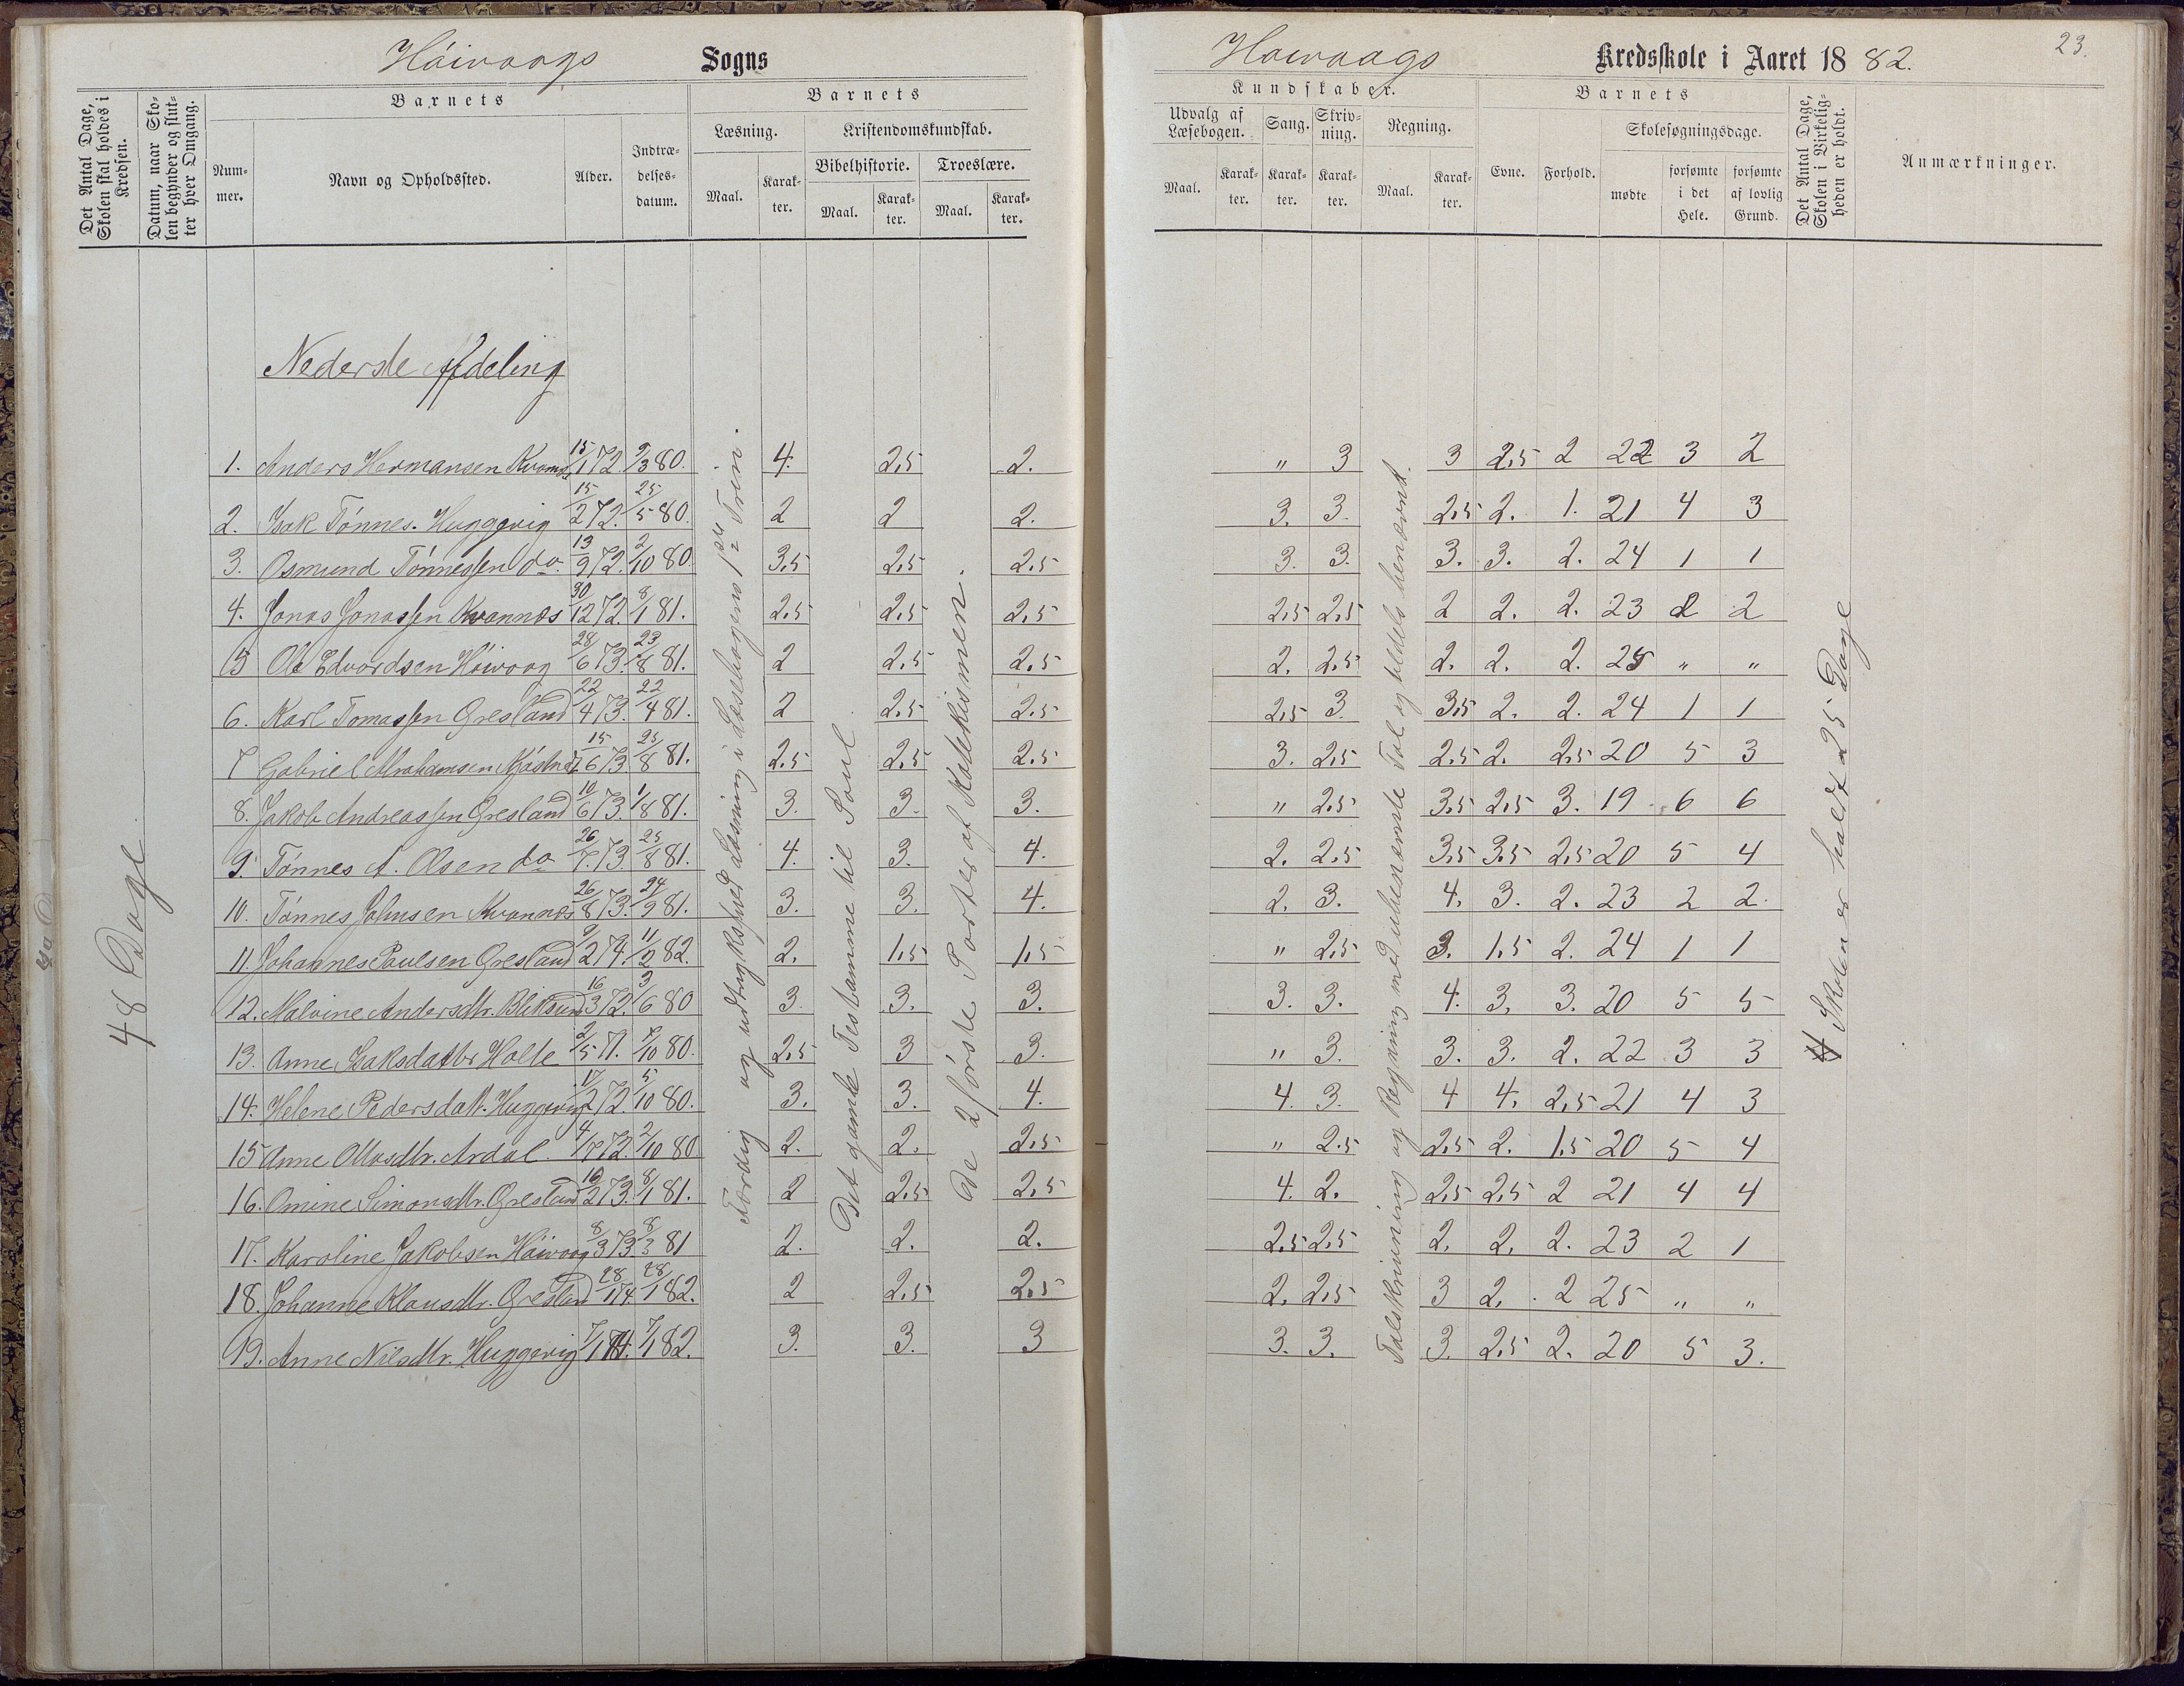 Høivaags Sogns
Det Antal Dage, Skolen skal holdes i Kredsen.
Datum, naar Skolen begynder og slutter hver Omgang.
Barnets
Nummer.
Navn og Opholdssted.
Alder.
Indtrædelses-datum.
Barnets
Læsning.
Kristendomskundskab.
Bibelhistorie.
Troeslære.
Maal.
Karakter.
Maal.
Karakter.
Maal.
Karakter.
48 Dage
Nederste Afdeling
1. Anders Hermansen 15/1 72. 9/3 80. 4. 2,5 2.
2. Isak Tønnes. Huggevig 15/2 72. 25/5 80. 2 2 2.
3. Osmund Tønnessen do. 13/9 72. 2/10 80. 3,5 2,5 2,5
4. Jonas Jonassen Kvannes 30/12 72. 8/1 81. 2,5 2,5 2,5
5 Ole Edvardsen Høivaag 28/6 73. 23/8 81. 2 2,5 2,5
6. Karl Tomassen Gresland 22/4 73. 22/4 81. 2 2,5 2,5
7 Gabriel Abrahamsen 15/6 73. 25/8 81. 2,5 2,5 2,5
8. Jakob Andreassen Gresland 10/6 73. 1/8 81. 3. 3. 3.
9. Tønnes A. Olsen do 26/7 73. 25/8 81. 4. 3. 4.
10. Tønnes Johnsen Kvannes 26/8 73. 24/9 81. 3. 3. 4.
11. Johannes Paulsen Gresland 9/2 74. 11/2 82. 2. 1,5 1,5
12. Malvine Andersdtr. Bliksund 16/3 72. 3/6 80 3. 3. 3.
13. Anne Isaksdatter Holte 2/5 71. 7/10 80. 2,5 3 3.
14. Helene Pedersdatt. Huggevig 17/2 72. 5/10 80. 3. 3. 4.
15 Anne Ollasdtr. Ardal. 4/7 72. 2/10 80 2. 2. 2,5
16. Omine Simonsdtr. Gresland 16/2 73. 8/1 81. 2 2,5 2,5
17. Karoline Jakobsen Høivaag 8/3 73. 8/3 81 2. 2. 2.
18. Johanne Klausdtr. Gresland 28/1 74. 28/1 82. 2 2,5 2,5
19. Anne Nilsdtr. Huggevig 7/1 74. 7/1 82. 3. 3. 3
Færdig og udtryksfuld Læsning i Læsebogens 1ste Trin.
Det gamle Testamme til Saul.
De 2 første Parter af Katekismen.
Høivaags Kredsskole i Aaret 1882.
23.
Kundskaber.
Udvalg af Læsebogen.
Sang.
Skrivning.
Regning.
Maal.
Karakter.
Karakter.
Karakter.
Maal.
Karakter.
Barnets
Evne.
Forhold.
Skolesøgningsdage.
mødte
forsømte i det Hele.
forsømte af lovlig Grund.
Det Antal Dage, Skolen i Virkeligheden er holdt.
Anmærkninger.
" 3 3 2,5 2 22 3 2
3. 3. 2,5 2. 1. 21 4 3
3. 3. 3. 3. 2. 24 1 1
2,5 2,5 2 2. 2. 23 2 2
2. 2,5 2. 2. 2. 25 " "
2,5 3. 3,5 2. 2. 24 1 1
3. 2,5 2,5 2. 2,5 20 5 3
" 2,5 3,5 2,5 3. 19 6 6
2. 2,5 3,5 3,5 2,5 20 5 4
2. 3. 4. 3. 2. 23 2 2.
" 2,5 3. 1,5 2. 24 1 1
3. 3. 4. 3. 3. 20 5 5
" 3. 3. 3. 2. 22 3 3
4. 3. 4 4. 2,5 21 4 3
" 2.5 2,5 2. 1.5 20 5 4
4. 2. 2,5 2,5 2 21 4 4
2,5 2,5 2. 2. 2. 23 2 1
2. 2,5 3 2. 2 25 " "
3. 3. 3. 2,5 2. 20 5 3.
Talskrivning og Regning med ubenævnte Tal og tildels benævnt.
Skolen er holdt 25 Dage